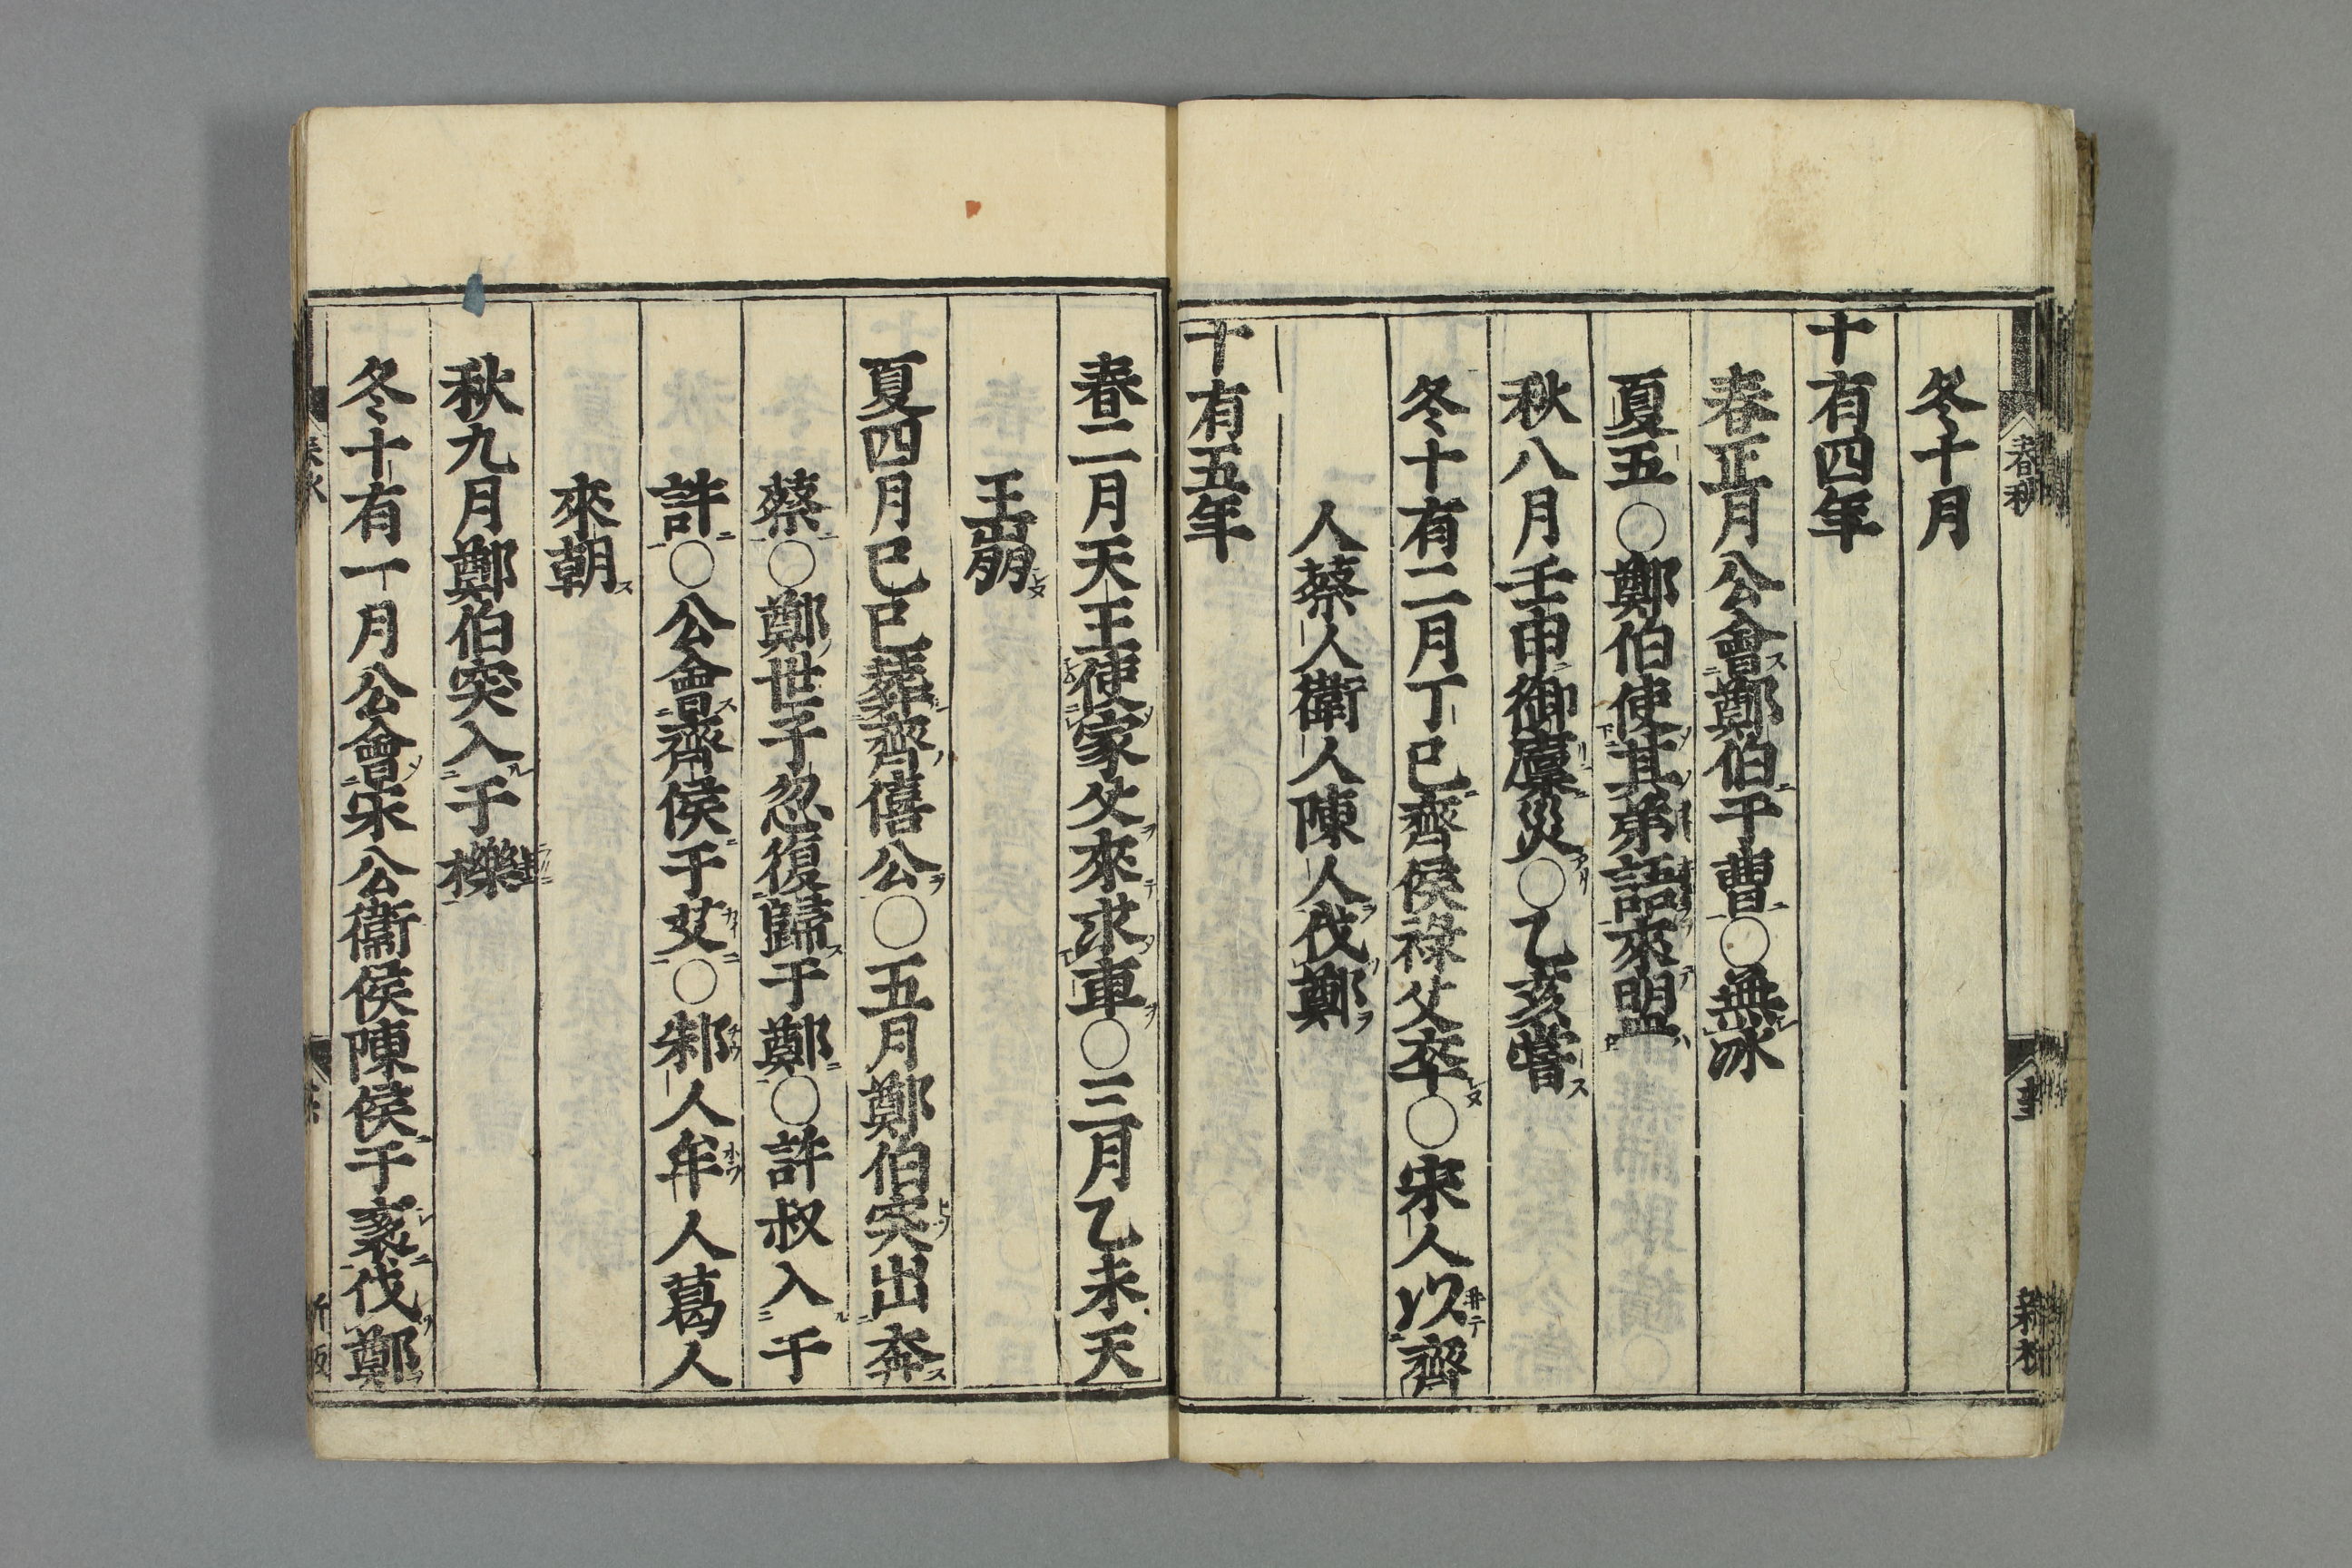 春秋
新板
冬十月
十有四年
春正月公會鄭伯于曹〇無冰
夏五〇鄭伯使其弟語來盟
秋八月壬申御廩災〇乙亥嘗
冬十有二月丁巳齊侯祿父卒〇宋人以齊
人蔡人衛人陳人伐鄭
十有五年
春二月天王使家父來求車〇三月乙未天
王崩
夏四月己巳葬齊僖公〇五月鄭伯突出奔
蔡〇鄭世子忽復歸于鄭〇許叔入于
許〇公會齊侯于艾〇邾人牟人葛人
來朝
秋九月鄭伯突入于櫟
冬十有一月公會宋公衞侯陳侯于袤伐鄭